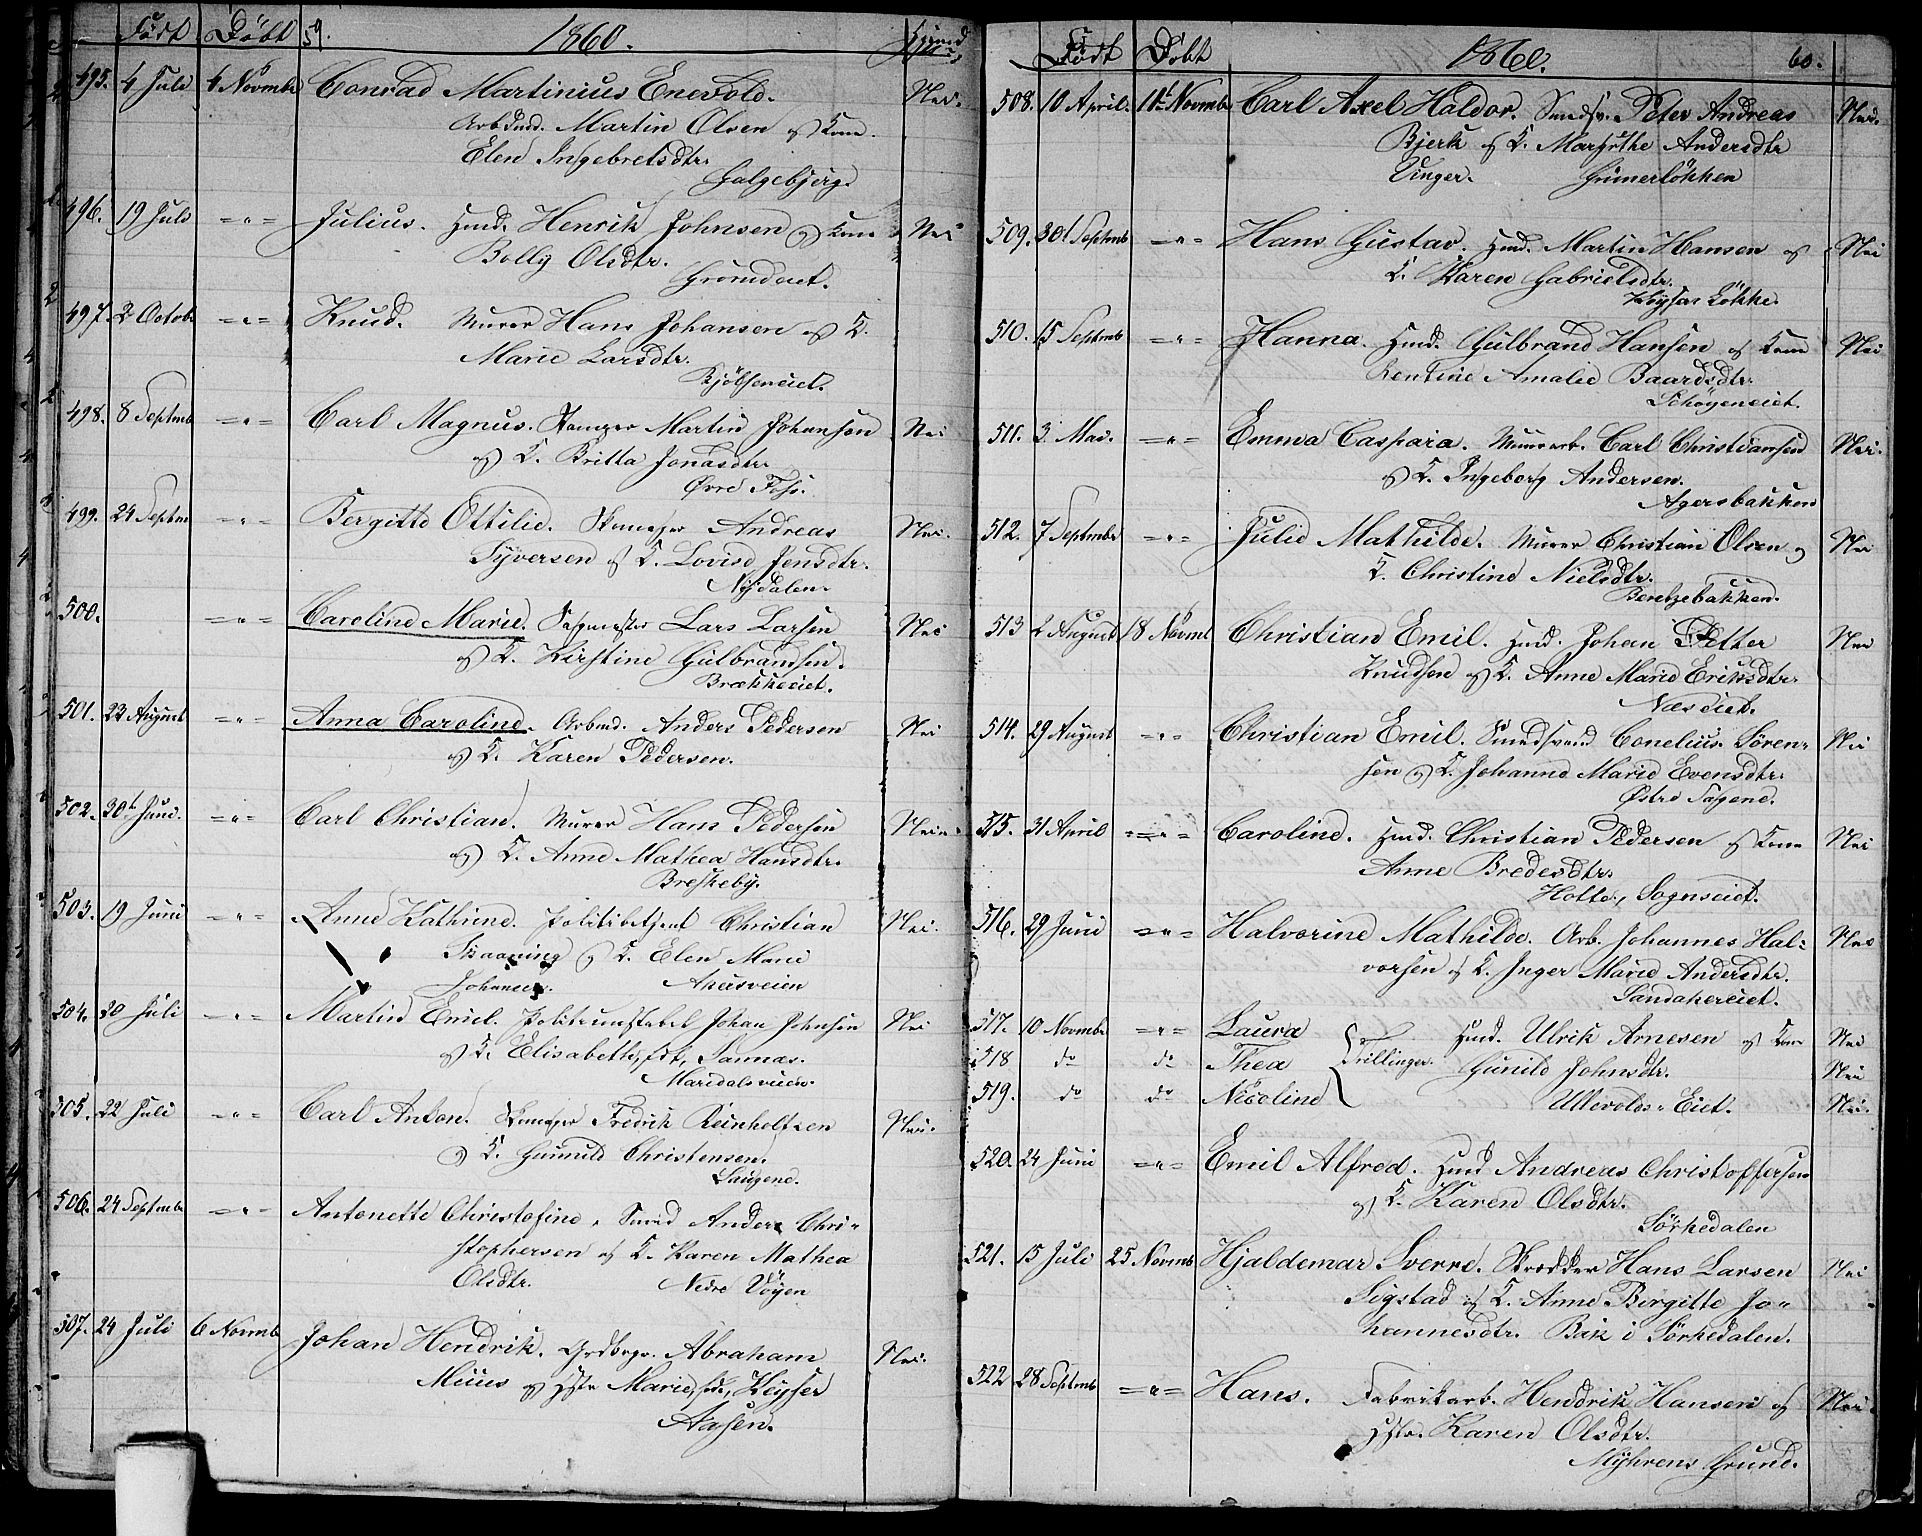 Født Døbt 59. 1860.
495. 4 Juli 4 Novmbr Conrad Martinius Enevold. Nei.
Arbmd. Martin Olsen og Kone
Elen Ingebretsdtr.
Galgebjerg.
496. 19 Juli -"- Julius. Husm. Henrik Johnsen og Kone Nei
Bolly Olsdtr.
Grønvold.
497. 2 Octobr -"- Knud. Murer Hans Johansen og K.
Marie Larsdtr.
498. 8 Septmb -"- Carl Magnus. Martin Johansen Nei
og K. Britta Jonasdtr.
Øvre Foss.
499. 24 Septm -"- Bergitte Ottilie. Andreas Nei.
Syversen og K. Lovise Jensdtr.
Nydalen.
500. -"- Caroline Marie. Lars Larsen Nei
og K. Kirstine Gulbrandsen.
Brækkeeiet.
501. 22 August -"- Anna Caroline. Arbmd. Anders Pedersen Nei
og K. Karen Pedersen.
502. 30t Juni. -"- Carl Christian. Murer Hans Pedersen Nei
og K. Anne Mathea Hansdtr.
Breskeby.
503. 19 Juni -"- Anne Kathrine. Politibetjent Christian Nei.
Skaaning og K. Elen Marie
Johansen. Akersveien
504. 30 Juli -"- Martin Emil. Politikonstabel Johan Johnsen Nei
og K. Elisabeth, fdt, Sannæs.
Maridalsveien.
505. 22 Juli -"- Carl Anton. Fredrik Reinholtzen Nei.
og K. Gunnild Christensen.
Saugene.
506. 24 Septmbr -"- Antonette Christofine. Smed Anders Chri-
stophersen og K. Karen Mathea
Olsdtr. Nedre Vöyen
507. 24 Juli 6 Novmb Johan Hendrik. Grdbrgr. Abraham Nei.
Muus og Hstr Marie, fdt, Keyser
Aasen.
Født Döbt 1860. 60.
508. 10 April. 11t Novmbr Carl Axel Haldor. Smedsv. Peter Andreas Nei.
Bjerk og K. Margrethe Andersdtr
Vinger. Grünerlökken
509. 30t Septmb -"- Hans Gustav. Husm. Martin Hansen og Nei
K. Karen Gabrielsdtr.
Keysers Lökke.
510. 15 Septmb -"- Hanna. Husm. Gulbrand Hansen og Kone Nei
Kentine Amalie Baardsdtr.
Schøyeneiet.
511. 3 Mai. -"- Emma Caspara. Murarb. Carl Christiansen Nei.
og K. Ingeborg Andersen.
Agersbakken
512. 7 Septmbr -"- Julie Mathilde. Murer Christian Olsen og Nei
K. Christine Nielsdtr.
Beretzebakken.
513 2 August 18 Novmb Christian Emil. Husm. Johan Petter Nei
Knudsen og K. Anne Marie Eriksdtr.
Næs Eiet.
514. 29 August -"- Christian Emil. Smedsvend Conelius Søren- Nei
sen og K. Johanne Marie Evensdtr.
Østre Sagene.
515. 31 April -"- Caroline. Husm. Christian Pedersen og Kone Nei
Anne Bredesdtr.
Hotte, Sognseiet.
516. 29 Juni -"- Halvorine Mathilde. Arb. Johannes Hal- Nei
vorsen og K. Inger Marie Andersdtr.
Sandakereiet.
517. 10 Novmbr -"- Laura Husm. Ulrik Arnesen og Kone Nei
518 do do Thea Trillinger. Gunild Johnsdtr. Nei
519. do do Nicoline Ullevolds-Eiet. Nei.
520. 24 Juni -"- Emil Alfred. Husm Andreas Christoffersen
og K. Karen Olsdtr.
Sörkedalen
521. 15 Juli 25 Novmb Hjaldemar Sverre. Skrædder Hans Larsen Nei
Sigstad og K. Anne Birgitte Jo-
hannesdtr. Bak i Sörkedalen.
522 28 Septmb -"- Hans. Fabrikarb. Hendrik Hansen og Nei.
Hstr. Karen Olsdtr.
Myhrens Grund.